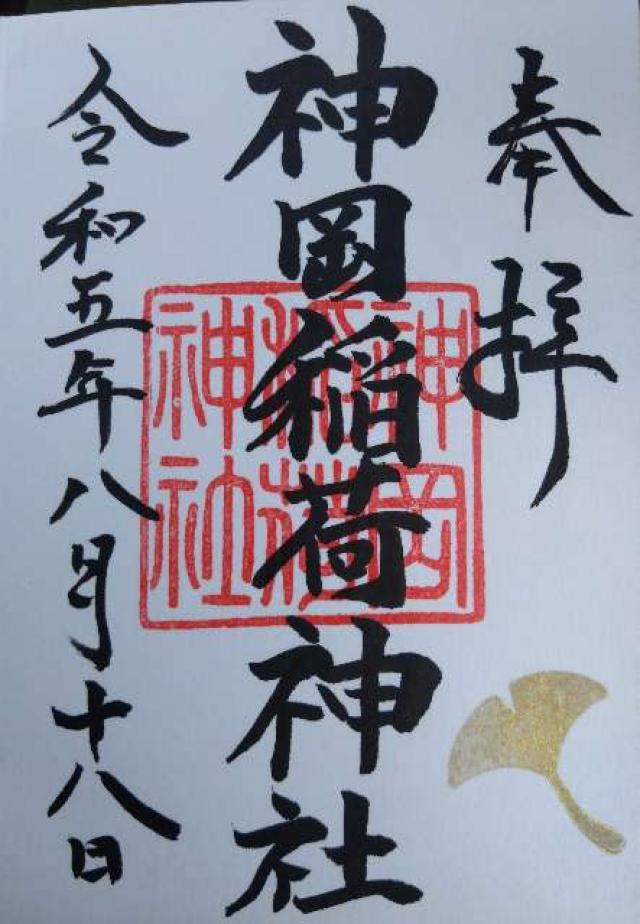 奉拝
神岡稲荷神社
神岡
稲荷
神社
令和五年八月十八日